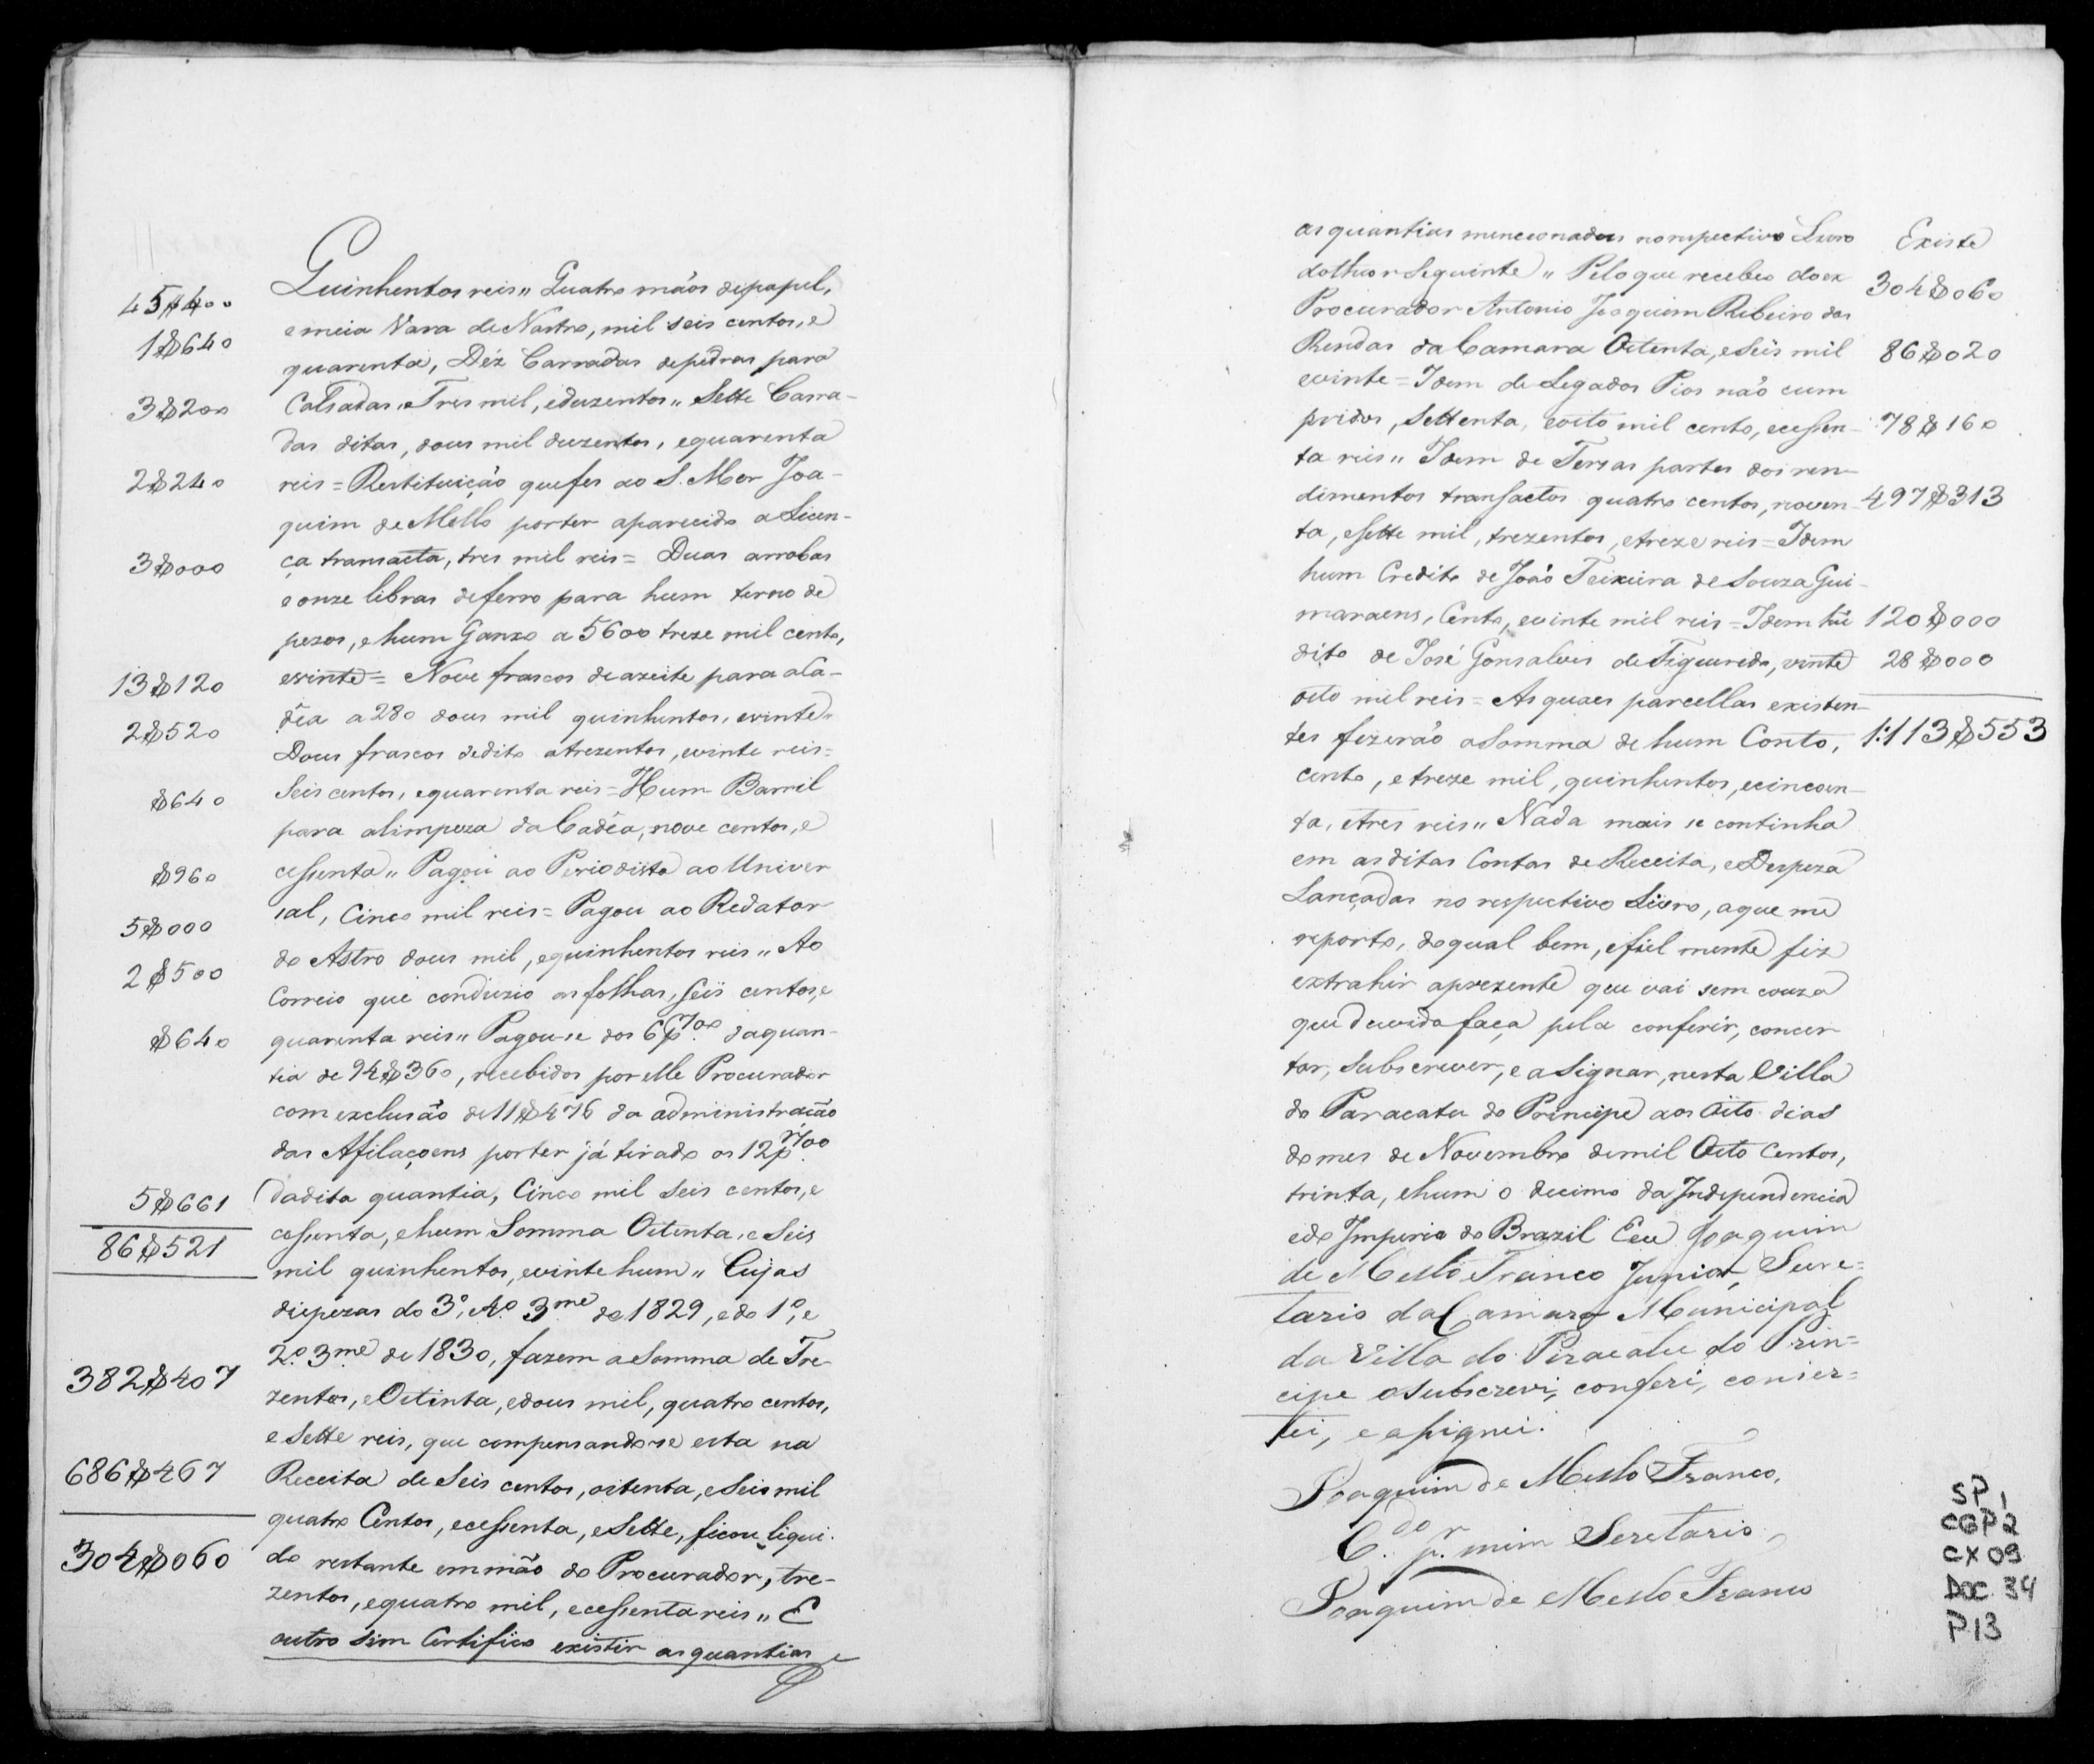 Quinhentos reis" Quatro mãos depapel,
45$400
emeia Vara de Nastro, mil seis centos, e
1$640
quarenta, Déz Carradas depedras para
Calsadas, "Tres mil, eduzentos" Sette Carra-
3$200
das ditas, dous mil duzentos, equarenta
reis = Restituição quefes ao S. Mor Joa-
2$240
quim de Mello porter aparecido a Licen-
ça transacta, tres mil reis = Duas arrobas
3$000
e onze libras deferro para hum terno de
pezos, ehum Ganxo a 5600 treze mil cento,
evinte = Nove frascos deazeite para aCa-
13$120
dêa a 280 dous mil quinhentos, evinte"
2$520
Dous frascos dedito atrezentos, evinte reis =
Seis centos, equarenta reis = Hum Barril
$640
para alimpeza daCadêa, nove centos, e
cessenta" Pagou ao Periodista ao Univer
$960
sal, Cinco mil reis = Pagou ao Redator
5$000
do Astro dous mil, equinhentos reis" Ao
2$500
Correio que conduzio as folhas, seis centos, e
quarenta reis" Pagou-se dos 6 p.% daquan-
$640
tia de 94$360, recebidos porelle Procurador
com exclusão de 11$476 da administração
das Afilaçoens porter já tirado os 12 p.%
dadita quantia, Cinco mil seis centos, e
5$661
cessenta, ehum Somma Oitenta, e Seis
86$521
mil quinhentos, evintehum" Cujas
dispezas do 3º, Ao 3me de 1829, edo 1º, e
2º 3me de 1830, fazem a Somma de Tre-
382$407
zentos, eOitenta, edous mil, quatro centos,
e Sette reis, que compensando-se esta na
Receita de Seis centos, oitenta, eSeis mil
686$467
quatro Centos, ecessenta, eSette, ficou liqui-
do restante emmão do Procurador, tre-
304$060
zentos, equatro mil, ecessenta reis" E
outro sim Certifico existir as quantias
as quantias mencionadas norespectivo Livro
Existe
dotheor Seguinte" Peloque recebeo doex
304$060
Procurador Antonio Joaquim Ribeiro das
Rendas daCamara Oitenta, eSeis mil
86$020
evinte = Idem de Legados Pios não cum
pridos, Settenta, eoito mil cento, ecessen-
78$160
ta reis" Idem de Tersas partes dos ren-
dimentos transactos quatro centos, noven-
497$313
ta, eSette mil, trezentos, etreze reis = Idem
hum Credito de João Teixeira de Souza Gui-
maraens, Cento, evinte mil reis = Idem hũ
120$000
dito de José Gonsalves de Figueredo, vinte
28$000
oito mil reis = As quaes parcellas existen-
tes fizerão aSomma de hum Conto,
1:113$553
cento, e treze mil, quinhentos, ecincoen-
ta, etres reis" Nada mais se continha
em as ditas Contas de Receita, eDespeza
Lançadas no respectivo Livro, aque me
reporto, doqual bem, efiel mente fiz
extrahir aprezente que vai sem couza
que duvida faça pela conferir, concer
tar, subscrever, e aSignar, nesta Villa
do Paracatu do Principe aos Oito dias
domes de Novembro demil Oito Centos,
trinta, ehum o decimo da Independencia
edo Imperio do Brazil Eeu Joaquim
de Mello Franco Junior, Secre=
tario daCamara Municipal
da Villa do Paracatu do Prin=
cipe osubscrevi, conferi, conser=
tei, e assignei.
Joaquim de Mello Franco,
C.do pr. mim Secretario,
Joaquim de Mello Franco
SP 1
CGP 2
CX 09
DOC. 34
P13